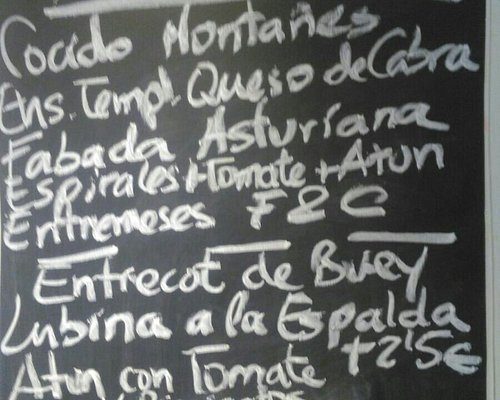 Cocido Montañes
Ens. Templ. Queso de Cabra
Fabada Asturiana
Espirales+Tomate+Atun
Entremeses F & C
Entrecot de Buey
Lubina a la Espalda
+2'5€
Atun con Tomate